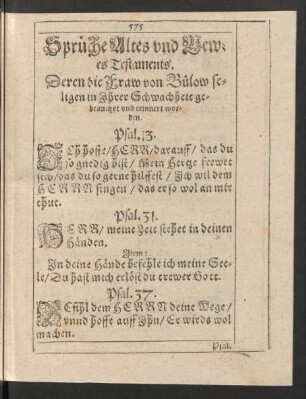 575
Sprüche Altes vnd New-
es Testaments.
Deren die Fraw von Bülow se-
ligen in Ihrer Schwachheit ge-
brauchet vnd erinnert wor-
den.
Psal. 13.
ICh hoffe/HERR/darauff/ das du
so gnedig bist/ Mein Hertze frewet
sich/das du so gerne hilffest/ Ich wil dem
HERRN singen/ das er so wol an mir
thut.
Psal. 31.
HERR/ meine Zeit stehet in deinen
Händen.
Item:
In deine Hände befehle ich meine See-
le/Du hast mich erlöst du trewer Gott.
Psal. 37.
BEfihl dem HERRN deine Wege/
vnnd hoffe auff Ihn/ Er wirds wol
machen.
Psal.